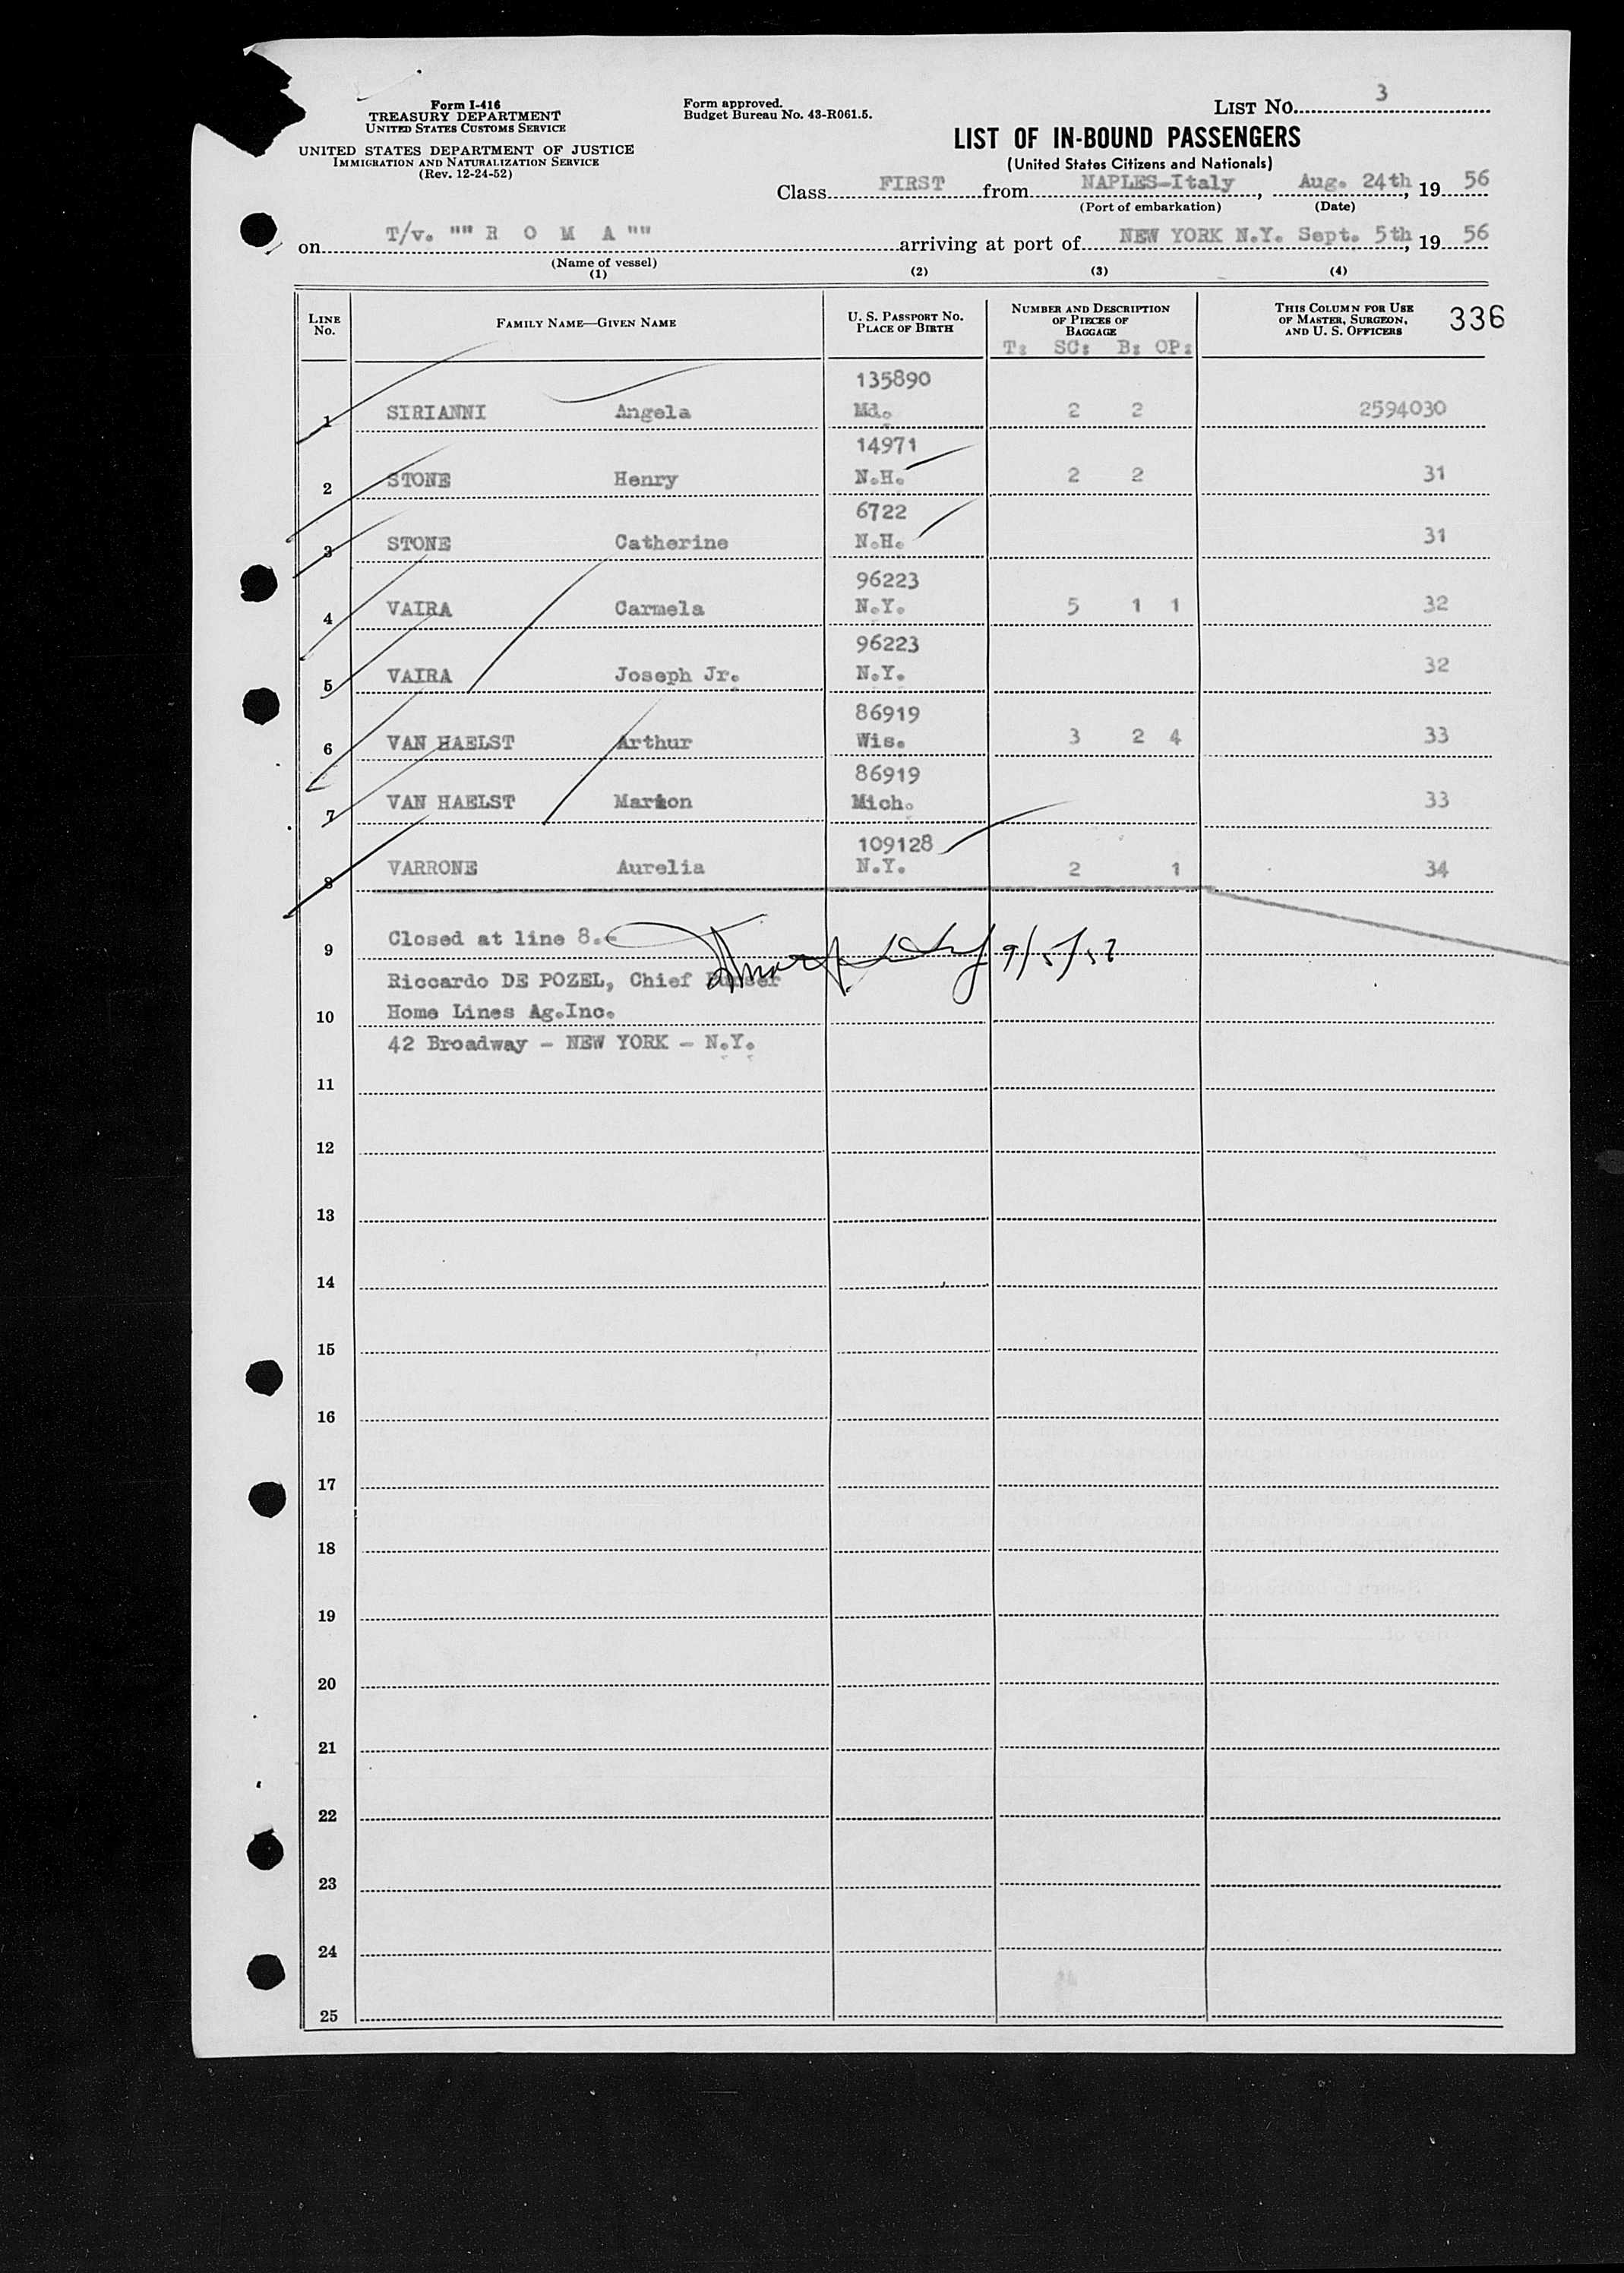 Form I-416
TREASURY DEPARTMENT
UNITED STATES CUSTOMS SERVICE
UNITED STATES DEPARTMENT OF JUSTICE
IMMIGRATION AND NATURALIZATION SERVICE
(Rev. 12-24-52)
Form approved.
Budget Bureau No. 43-R061.5.
LIST NO. 3
LIST OF IN-BOUND PASSENGERS
(United States Citizens and Nationals)
Class FIRST from NAPLES-Italy, Aug. 24th, 19 56
(Port of embarkation) (Date)
on T/v. "" R O M A "" arriving at port of NEW YORK N.Y. Sept. 5th, 19 56
(Name of vessel)
(1) (2) (3) (4)
LINE NO.
FAMILY NAME—GIVEN NAME
U. S. PASSPORT NO.
PLACE OF BIRTH
NUMBER AND DESCRIPTION
OF PIECES OF
BAGGAGE
T: SC: B: OP:
THIS COLUMN FOR USE
OF MASTER, SURGEON,
AND U. S. OFFICERS
336
135890
1 SIRIANNI Angela Md. 2 2 2594030
14971
2 STONE Henry N.H. 2 2 31
6722
3 STONE Catherine N.H. 31
96223
4 VAIRA Carmela N.Y. 5 1 1 32
96223
5 VAIRA Joseph Jr. N.Y. 32
86919
6 VAN HAELST Arthur Wis. 3 2 4 33
86919
7 VAN HAELST Marion Mich. 33
109128
8 VARRONE Aurelia N.Y. 2 1 34
9 Closed at line 8.-
Riccardo DE POZEL, Chief Purser
10 Home Lines Ag.Inc.
42 Broadway - NEW YORK - N.Y.
11
12
13
14
15
16
17
18
19
20
21
22
23
24
25